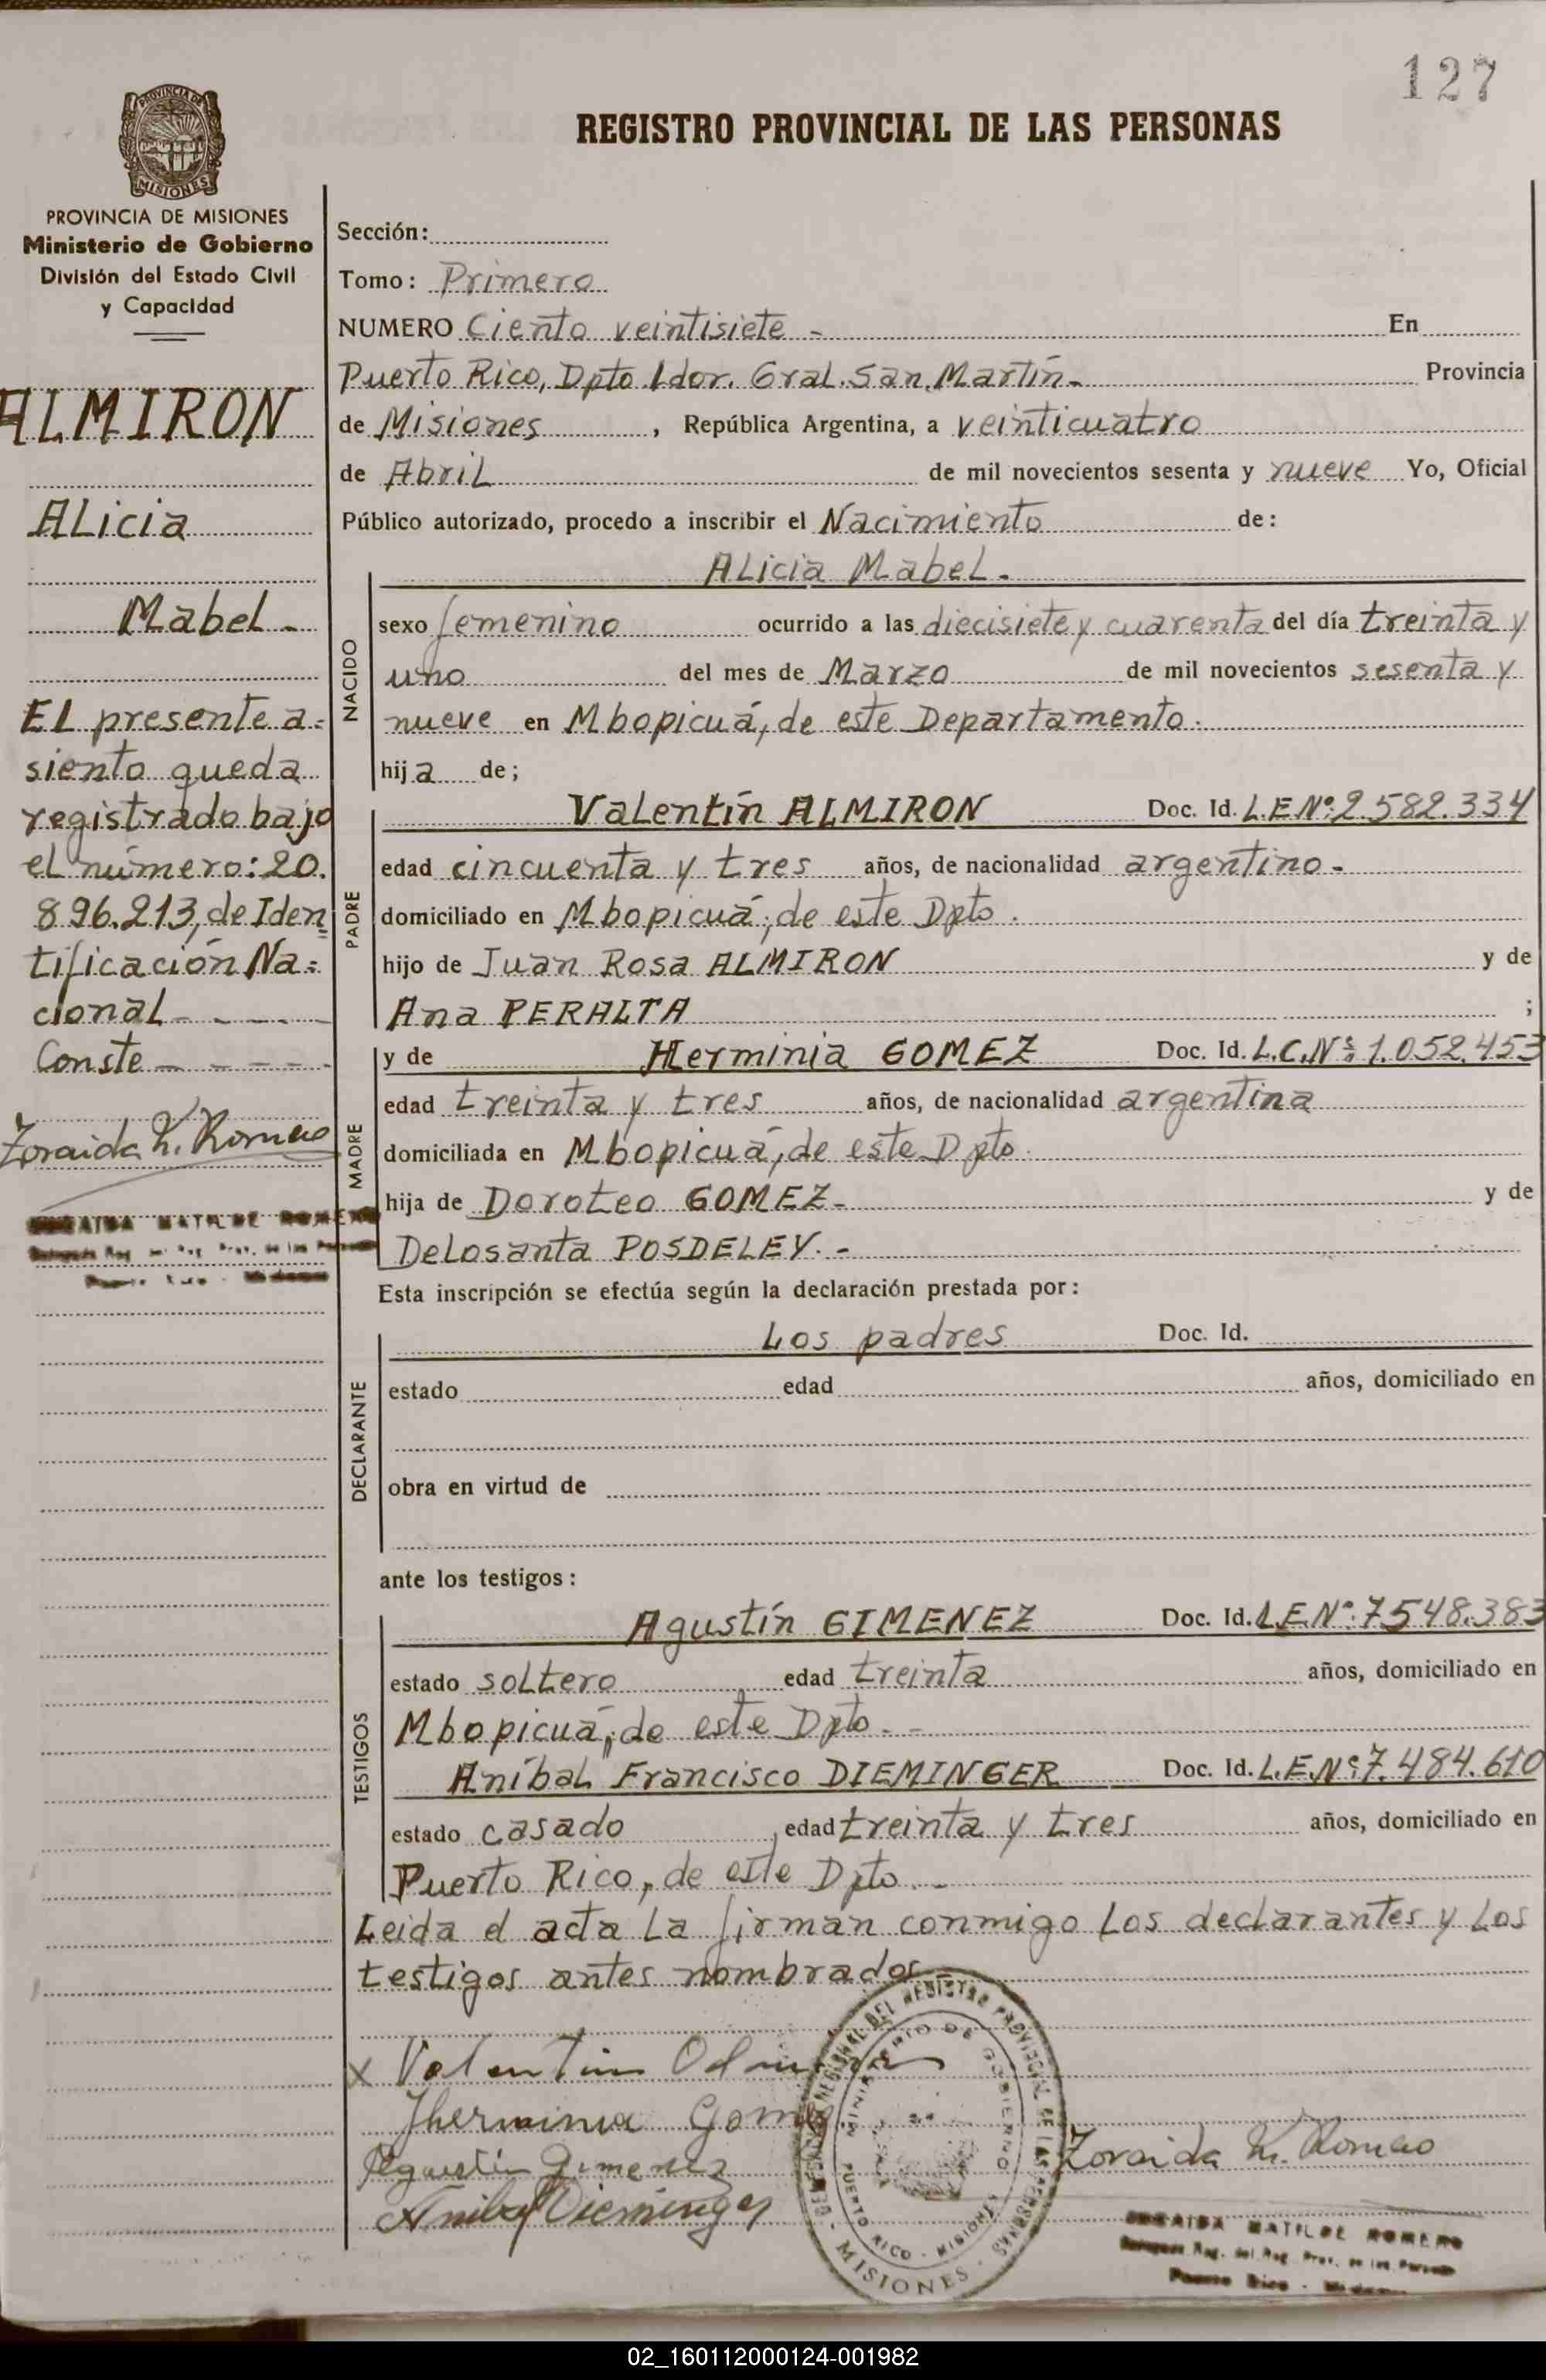 127
REGISTRO PROVINCIAL DE LAS PERSONAS
PROVINCIA DE MISIONES
PROVINCIA DE MISIONES
Ministerio de Gobierno
División del Estado Civil
y Capacidad
ALMIRON
Alicia
Mabel.-
El presente a=
siento queda
registrado bajo
el número: 20.
896.213, de Iden
tificación Na=
cional - - - -
Conste - - - -
Zoraida M. Romero
ZORAIDA MATILDE ROMERO
Sección:
Tomo: Primero
NUMERO Ciento veintisiete - En
Puerto Rico, Dpto Ldor. Gral. San Martín.- Provincia
de Misiones, República Argentina, a veinticuatro
de Abril de mil novecientos sesenta y nueve Yo, Oficial
Público autorizado, procedo a inscribir el Nacimiento de:
NACIDO
Alicia Mabel.-
sexo femenino ocurrido a las diecisiete y cuarenta del día treinta y
uno del mes de Marzo de mil novecientos sesenta y
nueve en Mbopicuá, de este Departamento.-
hija de;
PADRE
Valentín ALMIRON Doc. Id. L.E.Nº: 2.582.334
edad cincuenta y tres años, de nacionalidad argentino.-
domiciliado en Mbopicuá, de este Dpto.
hijo de Juan Rosa ALMIRON y de
Ana PERALTA ;
MADRE
y de Herminia GOMEZ Doc. Id. L.C.Nº: 1.052.453
edad treinta y tres años, de nacionalidad argentina
domiciliada en Mbopicuá, de este Dpto.
hija de Doroteo GOMEZ.- y de
Delosanta POSDELEY.-
Esta inscripción se efectúa según la declaración prestada por:
DECLARANTE
Los padres Doc. Id.
estado edad años, domiciliado en
obra en virtud de
ante los testigos:
TESTIGOS
Agustín GIMENEZ Doc. Id. L.E.Nº: 7.548.383
estado soltero edad treinta años, domiciliado en
Mbopicuá, de este Dpto.-
Aníbal Francisco DIEMINGER Doc. Id. L.E.Nº: 7.484.610
estado casado, edad treinta y tres años, domiciliado en
Puerto Rico, de este Dpto.-
Leida el acta la firman conmigo los declarantes y los
testigos antes nombrados.-
x Valentin
Jherminia Gomez
Agustin Gimenez
Anibal Dieminger
REGISTRO PROVINCIAL DE LAS PERSONAS
MINISTERIO DE GOBIERNO
PUERTO RICO - MISIONES
- MISIONES -
Zoraida M. Romero
ZORAIDA MATILDE ROMERO
Puerto Rico - Misiones
02_160112000124-001982